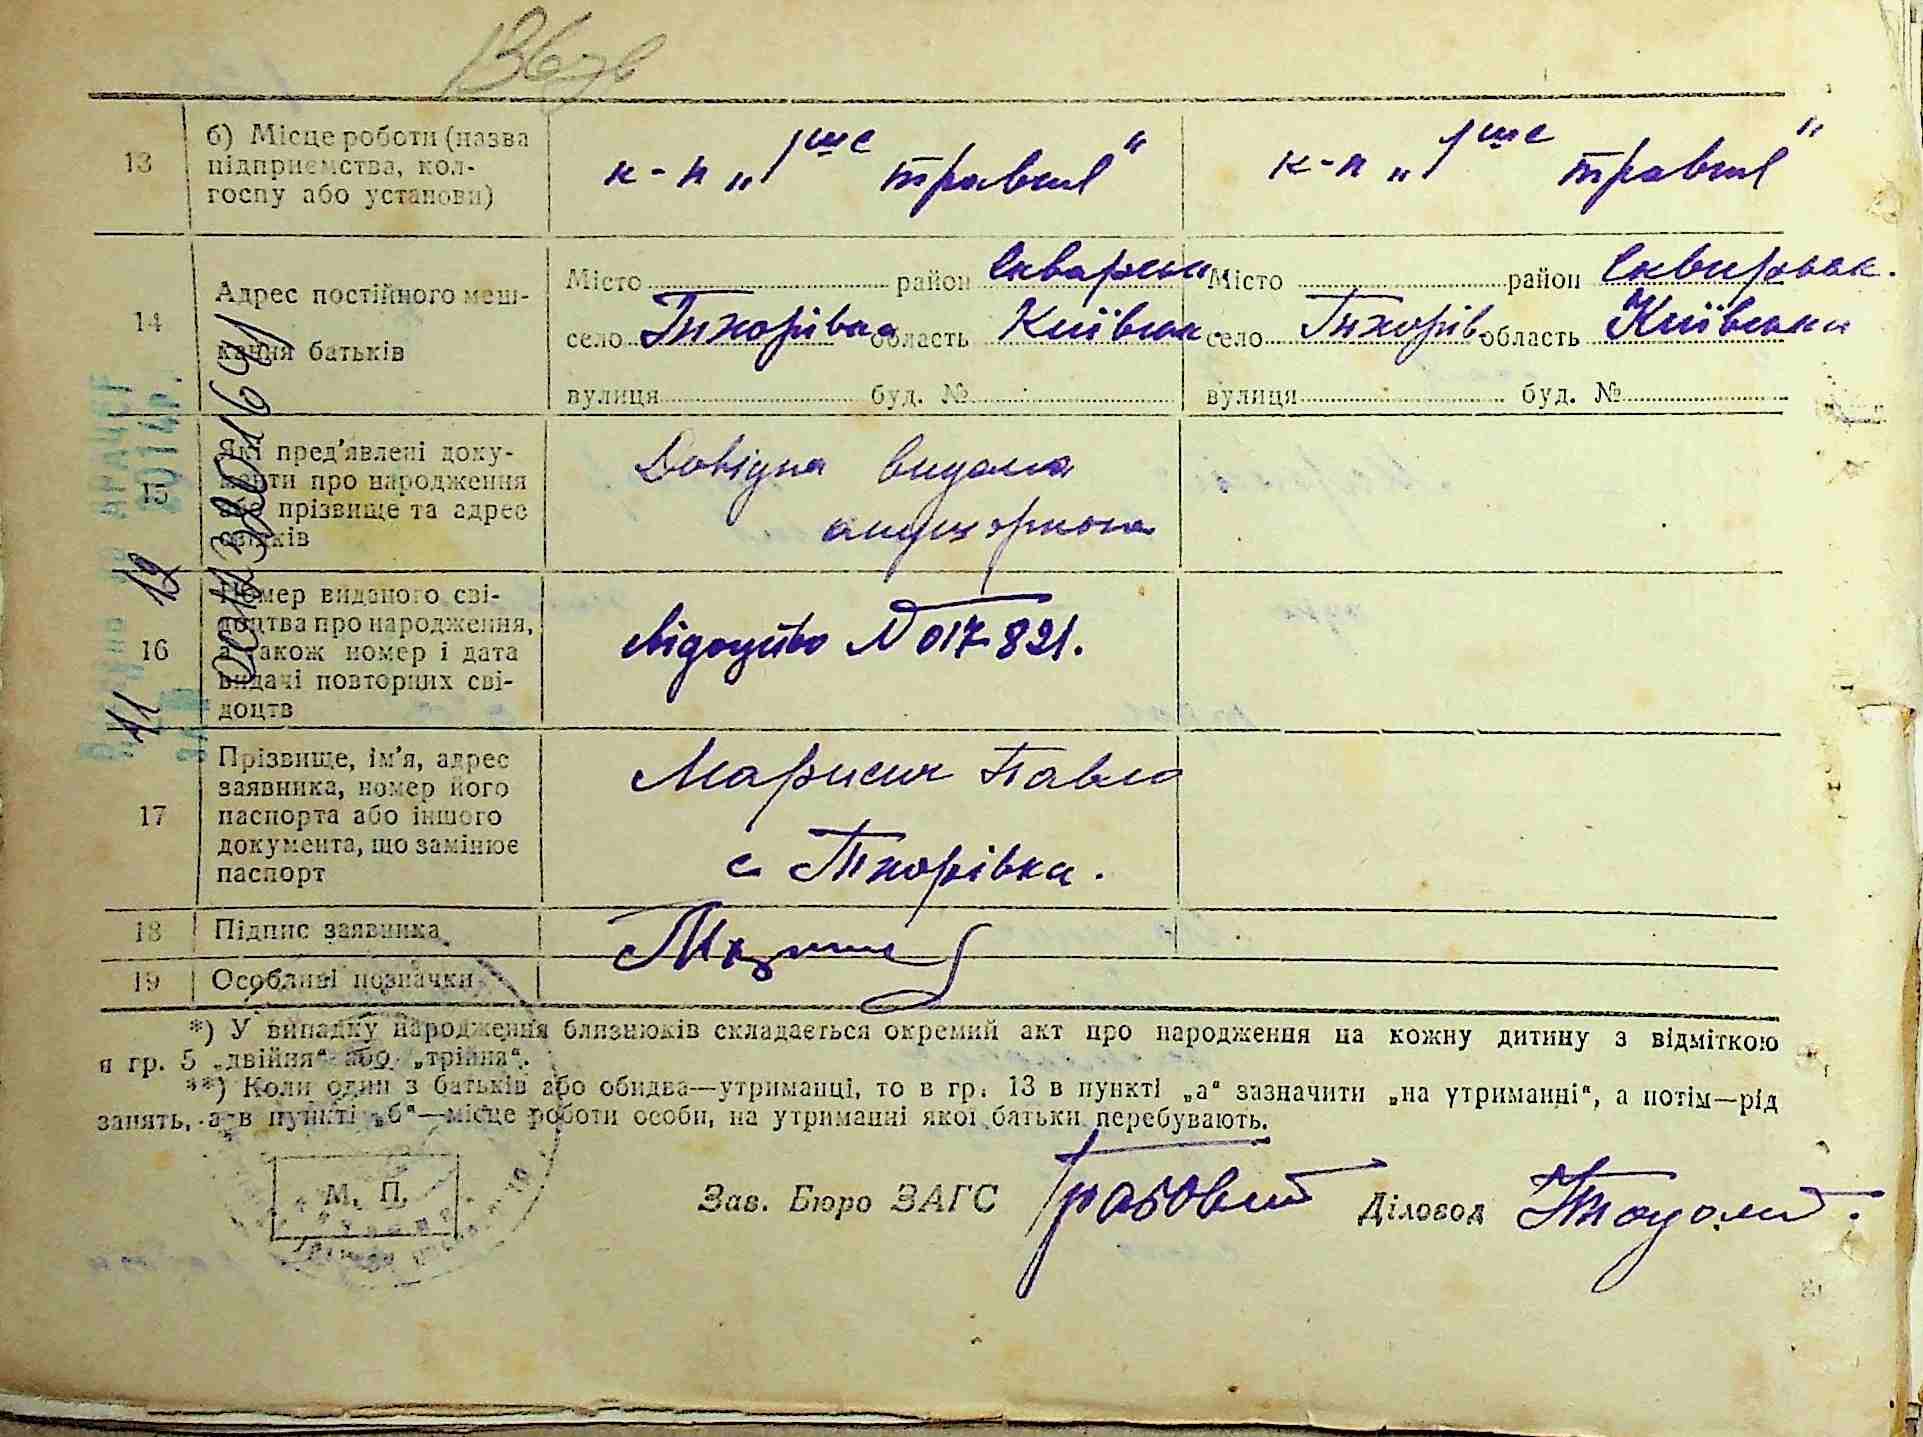 13 б) Місце роботи (назва підприємства, колгоспу або установи)
к-п „1ше травня“
к-п „1ше травня“
14 Адрес постійного мешкання батьків
Місто район Сквирськ
село Тхорівка область Київськ.
вулиця буд. №
Місто район Сквирськ.
село Тхорів область Київськи
вулиця буд. №
15 Які пред'явлені документи про народження або прізвище та адрес свідків
Довідка видана акушеркою
16 Номер виданого свідоцтва про народження, а також номер і дата видачі повторних свідоцтв
Свідоцтво № 017821.
17 Прізвище, ім'я, адрес заявника, номер його паспорта або іншого документа, що замінює паспорт
Марисич Павло
с Тхорівка.
18 Підпис заявника
19 Особливі позначки
*) У випадку народження близнюків складається окремий акт про народження на кожну дитину з відміткою
в гр. 5 „двійня“ або „трійня“.
**) Коли один з батьків або обидва—утриманці, то в гр. 13 в пункті „а“ зазначити „на утриманні“, а потім—рід
занять, а в пункті „б“—місце роботи особи, на утриманні якої батьки перебувають.
М. П.
Зав. Бюро ЗАГС
Діловод